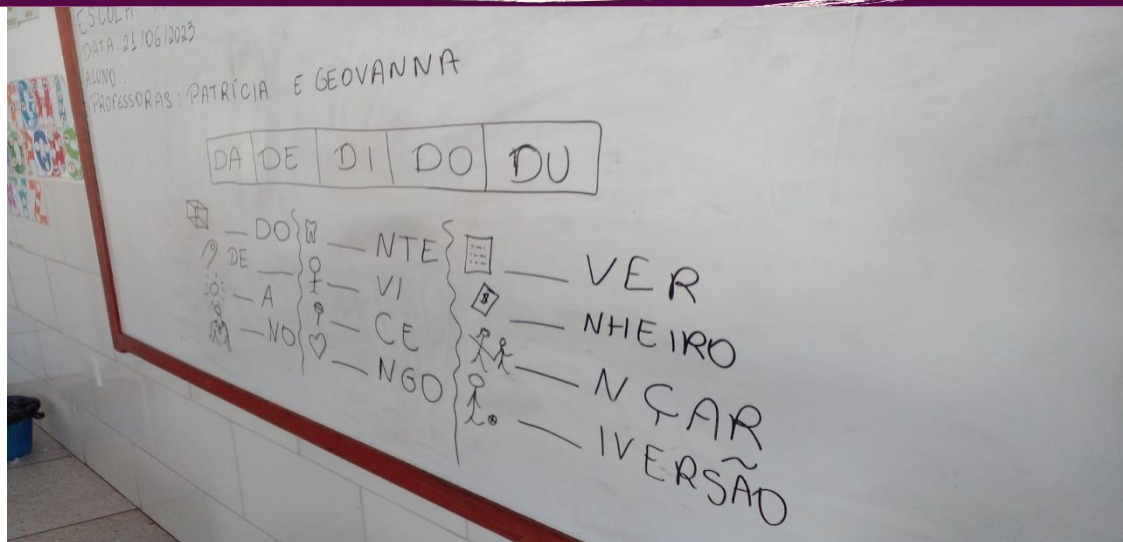 ESCOLA
DATA: 21/06/2023
ALUNO:
PROFESSORAS: PATRÍCIA E GEOVANNA
DA DE DI DO DU
__ DO
DE __
__ A
__ NO
__ NTE
__ VI
__ CE
__ NGO
__ VER
__ NHEIRO
__ NÇAR
__ IVERSÃO